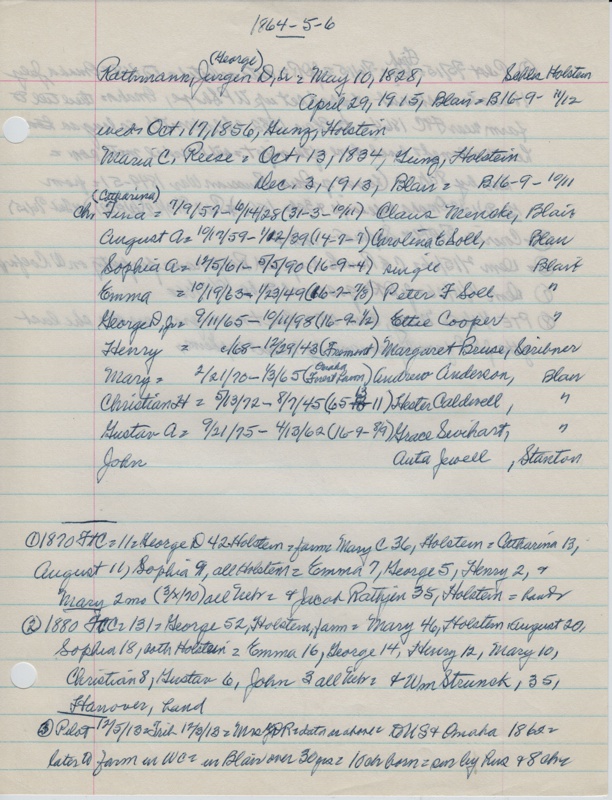 1864-5-6
(George)
Rathmann, Jurgen D, Sr = May 10, 1828, Holstein
April 29, 1915, Blair = B16-9-11/12
wed = Oct, 17, 1856, Gunz, Holstein
Maria C, Reese = Oct, 13, 1834 Gunz, Holstein
Dec, 3, 1913, Blair = B16-9-10/11
(Catharina)
Ch: Tina = 7/9/57- 6/14/28 (31-3-10/11) Claus Mencke, Blair
August A = 10/17/59- (14-7-7) Carolina E Soll, Blair
Sophia A = 12/5/61- 5/5/90 (16-9-4) single Blair
Emma = 10/19/63- 1/23/49 (16-7-7/8) Peter F Soll "
George D, Jr = 9/11/65- 10/11/98 (16-9-1/2) Ettie Cooper "
Henry = c/68- 12/29/43 (Fremont) Margaret Bruse, Scribner
Mary = 2/21/70- 1/3/65 (Omaha Forest Lawn) Andrew Anderson, Blair
Christian H = 5/13/72- 8/7/45 (65-13-11) Hester Caldwell, "
Gustav A = 9/21/75- 4/13/62 (16-9-8/9) Grace Swihart, "
John Auta Jewell, Stanton
① 1870 FTC = 11 = George D 42 Holstein = farm = Mary C 36, Holstein = Catharina 13,
August 11, Sophia 9, all Holstein = Emma 7, George 5, Henry 2, &
Mary 2 mo (3/x/70) all Nebr = & Jacob Rathjen 35, Holstein = hand
② 1880 FTC = 131 = George 52, Holstein, farm = Mary 46, Holstein = August 20,
Sophia 18, both Holstein = Emma 16, George 14, Henry 12, Mary 10,
Christian 8, Gustav 6, John 3 all Nebr = & Wm Strunsk, 35,
Hanover, hand
③ Pilot 12/5/13 = Trib 12/9/13 = Mrs JDR = data as above = to US & Omaha 1862 =
later to farm in WC = in Blair over 30 yrs = 10 ch born = surv by hus & 8 ch =